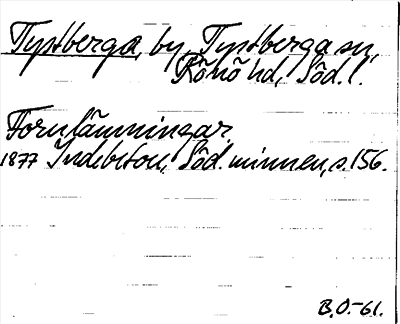 Tystberga, by, Tystberga sn,
Rönö hd, Söd.l.
Fornlämningar.
1877 Indebetou, Söd. minnen, s.156.
B.O.-61.